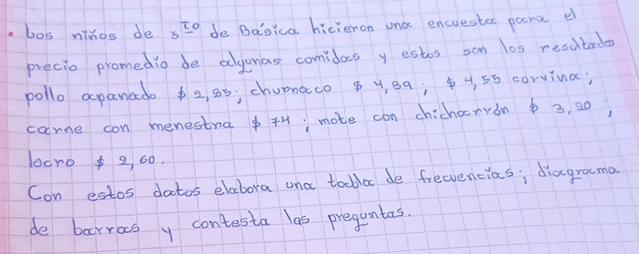 • Los niños de 5to de Básica hicieron una encuesta para el
precio promedio de algunas comidas y estos son los resultados
pollo apanado $ 2,85; chumaco $ 4,89; $ 4,55 corvina;
carne con menestra $ 74; mote con chicharrón $ 3,20;
locro $ 2,60.
Con estos datos elabora una tabla de frecuencias; diagrama
de barras y contesta las preguntas.